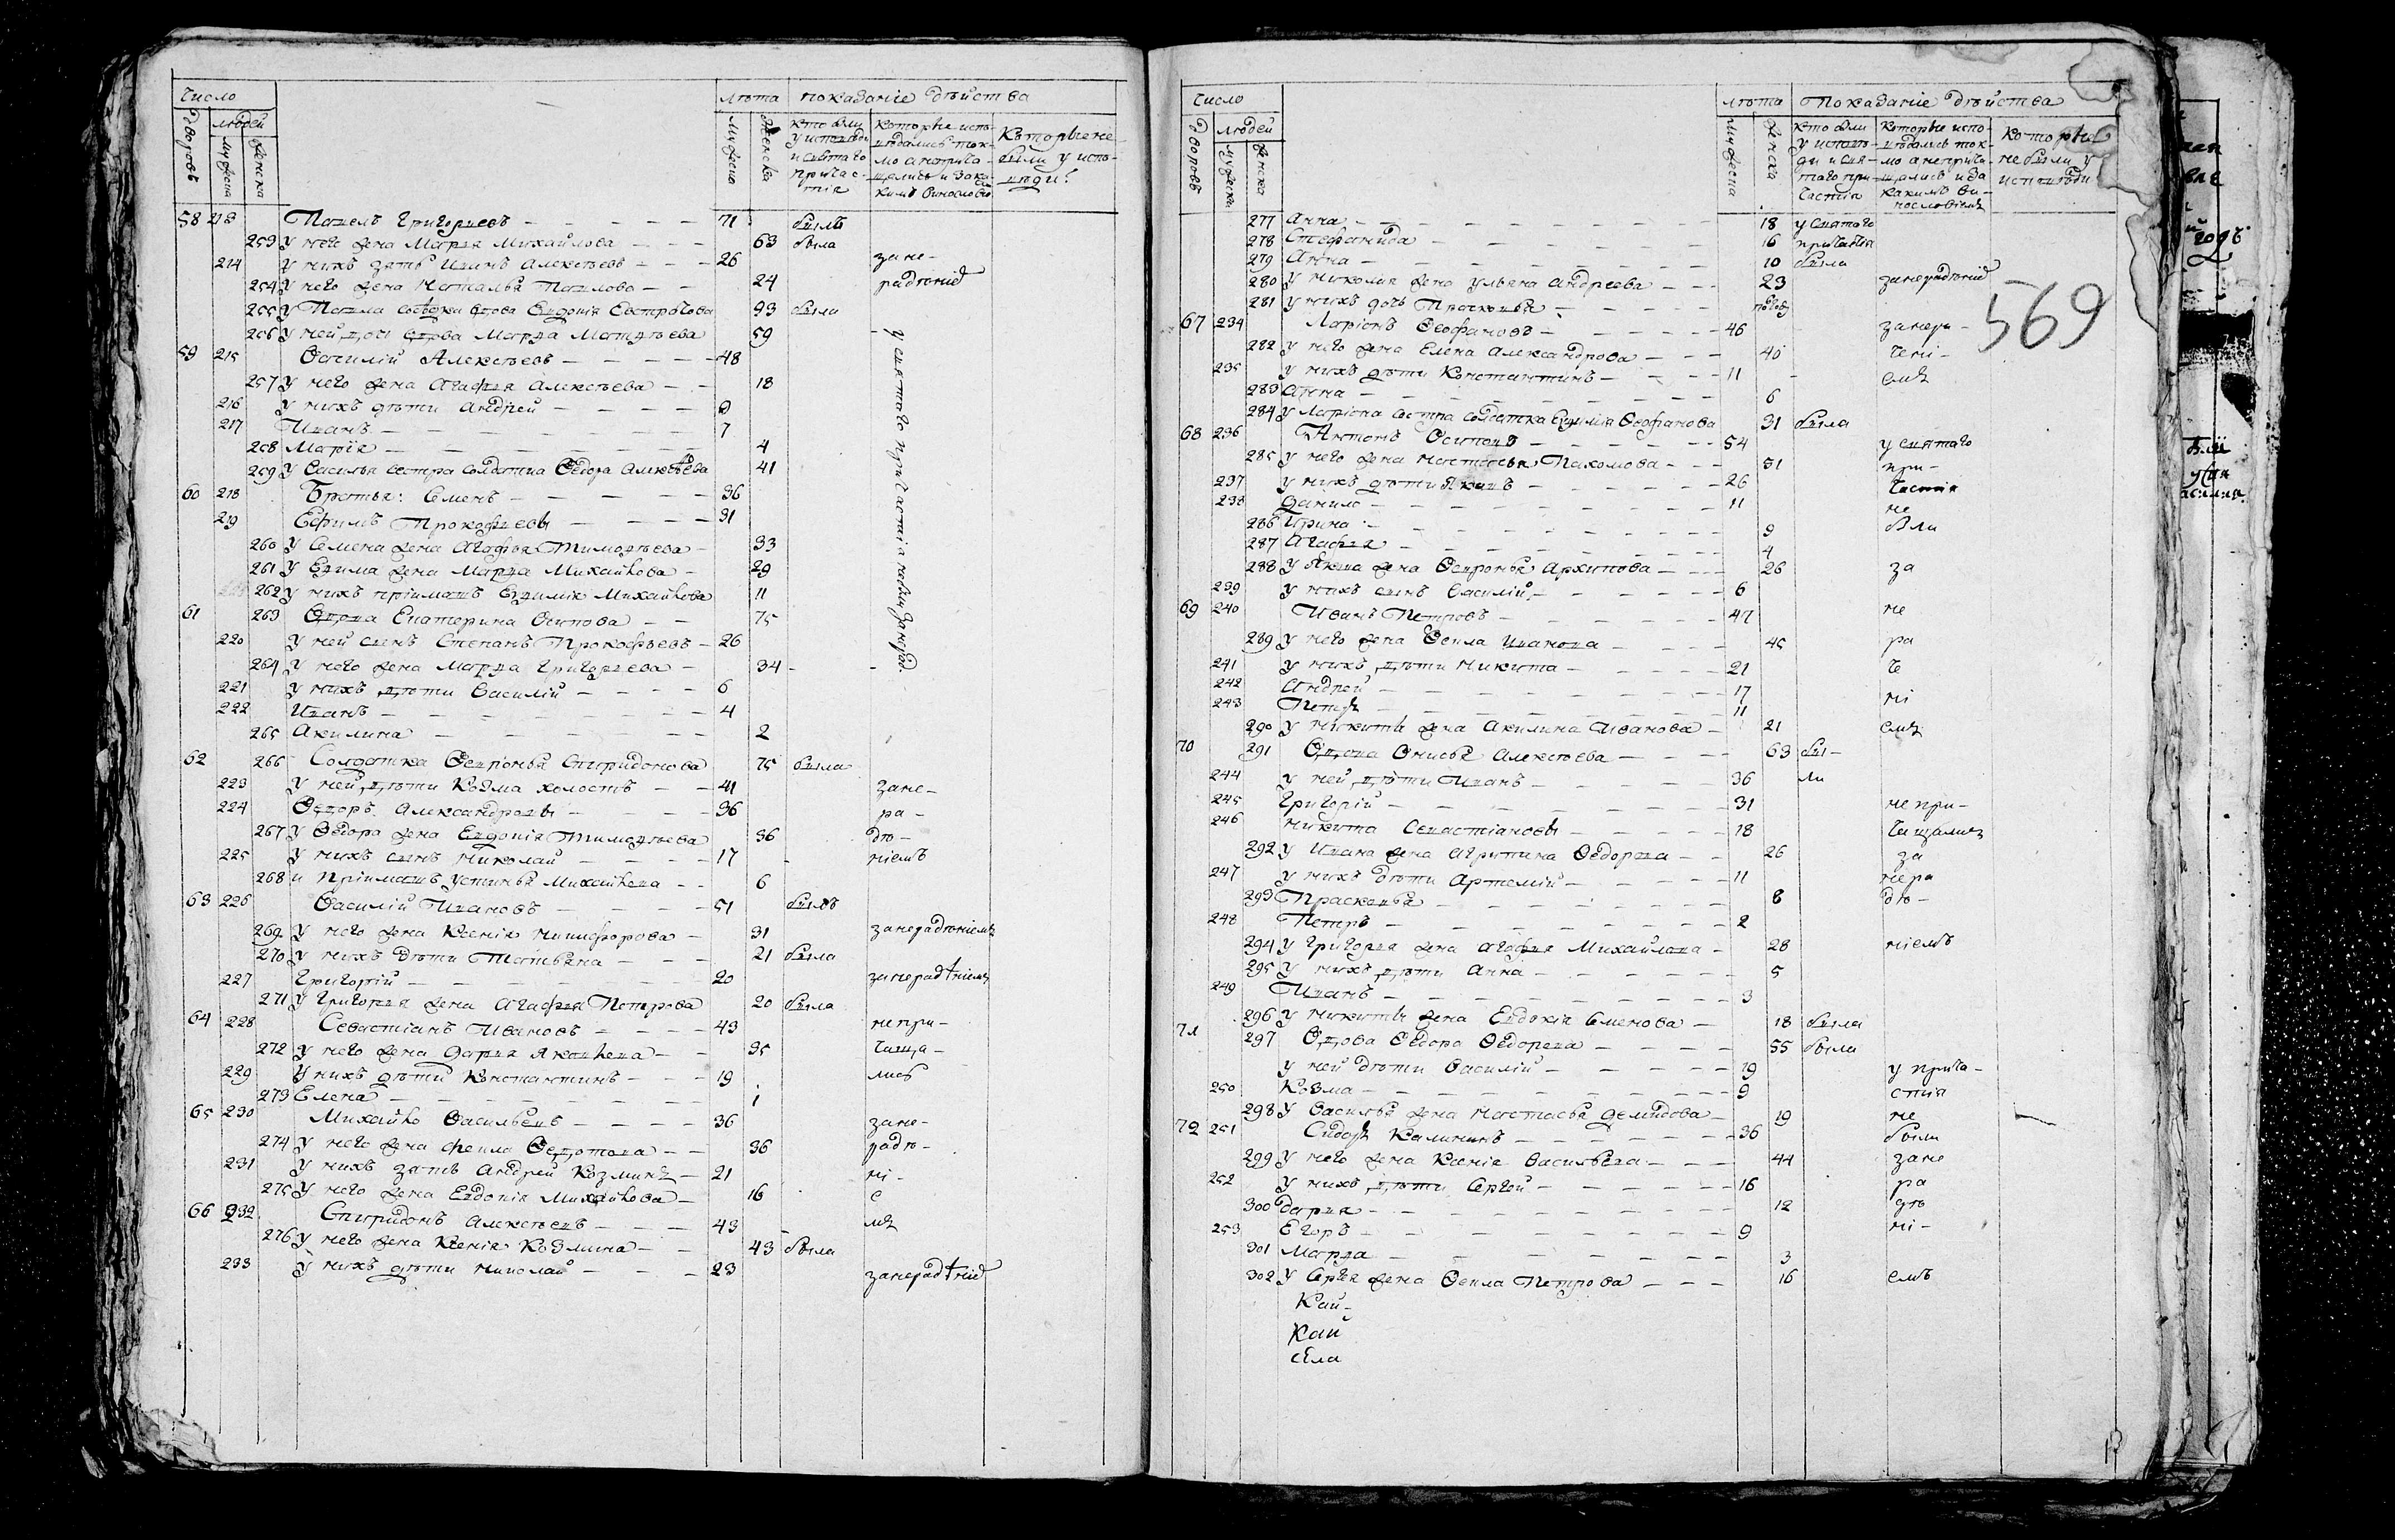 Число
лѣта показаніе дѣйства
Дворовъ
людей
мужеска
женска
мужеска
женска
кто были у исповѣди и святаго причастія
которые исповѣдались токмо а непричащались и за какимъ винословіе
Которые не были у исповѣди
58 213 Павелъ Григорьевъ 71 былъ
253 У него жена Марья Михайлова 63 была
214 У нихъ зять Иванъ Алексѣевъ 26 зане-
254 У него жена Наталья Павлова 24 радѣніе
255 У Павла вдова Евдокія 93 была
256 У ней дочь вдова Марфа Матвѣева 59
59 215 Василій Алексѣевъ 48
257 У него жена Агафья Алексѣева 18
216 У нихъ дѣти Андрей 9
217 Иванъ 7
258 Марія 4
259 У Василья сестра солдатка Ѳедора Алексѣева 41
у святаго причастія небыли занерад.
60 218 Братья: Семенъ 36
219 Ефимъ Прокофьевы 31
260 У Семена жена Агафья Тимофѣева 33
261 У Ефима жена Марфа Михайлова 29
262 У нихъ пріимышъ Евфимія Михайлова 11
61 263 Вдова Екатерина Осипова 75
220 У ней сынъ Степанъ Прокофьевъ 26
264 У него жена Марфа Григорьева 34
221 У нихъ дѣти Василій 6
222 Иванъ 4
265 Акилина 2
62 266 Солдатка Февронья Спиридонова 75 была
223 У ней дѣти Козма холостъ 41 зане-
224 Ѳедоръ Александровы 36 ра-
267 У Ѳедора жена Евдокія Тимофѣева 36 дѣ-
225 У нихъ сынъ Николай 17 ніемъ
268 и пріимышъ Устинья Михайлова 6
63 226 Василій Ивановъ 51 былъ
269 У него жена Ксенія Никифорова 31 занерадѣніемъ
270 У нихъ дѣти Татьяна 21 была
227 Григорій 20 занерадѣніемъ
271 У Григорья жена Агафья Петрова 20 была
64 228 Севастіанъ Ивановъ 43 непри-
272 У него жена Дарья Яковлева 35 чаща-
229 У нихъ дѣти Константинъ 19 лись
273 Елена 1
65 230 Михайло Васильевъ 36 зане-
274 У него жена Фекла Ѳедотова 36 радѣ-
231 У нихъ зять Андрей Козминъ 21 ні-
275 У него жена Евдокія Михайлова 16 е
66 232 Спиридонъ Алексѣевъ 43 мъ
276 У него жена Ксенія Козмина 43 была
233 У нихъ дѣти Николай 23 занерадѣніе
Число
лѣта Показаніе дѣйства
Дворовъ
Людей
мужеска
женска
мужеска
женска
кто были у исповѣди и святаго причастія
которые исповѣдались токмо а непричащались и за какимъ винословіемъ
которые не были у исповѣди
277 Анна 18 у святаго
278 Стефанида 16 причастія
279 Анна 10 была
280 У Николая жена Ульяна Андреева 23 занерадѣніе
281 У нихъ дочь Прасковья полгод
569
67 234 Ларіонъ Ѳеофановъ 46 занера-
282 У него жена Елена Александрова 40 чені-
235 У нихъ дѣти Константинъ 11 емъ
283 Анна 6
284 У Ларіона сестра солдатка Евфимія Ѳеофанова 31 была
68 236 Антонъ Осиповъ 54 у святаго
285 У него жена Настасья Пахомова 51 при-
237 У нихъ дѣти Яковъ 26 частія
238 Данило 11 не
286 Ирина 9 были
287 Агафья 4
288 У Якова жена Февронья Архипова 26 за
239 У нихъ сынъ Василій 6
69 240 Иванъ Петровъ 47 не
289 У него жена Ѳекла Иванова 45 ра
241 У нихъ дѣти Никита 21 че
242 Андрей 17 ні
243 Петръ 11
290 У Никиты жена Акилина Иванова 21 емъ
70 291 Вдова Анисья Алексѣева 63 бы-
244 У ней дѣти Иванъ 36 ла
245 Григорій 31 непри-
246 Никита Севастіановы 18 чащались
292 У Ивана жена Агрипина Ѳедорова 26 за
247 У нихъ дѣти Артемій 11 нера
293 Прасковья 8 дѣ-
248 Петръ 2
294 У Григорья жена Агафья Михайлова 28 ніемъ
295 У нихъ дѣти Анна 5
249 Иванъ 3
296 У Никиты жена Евдокія Семенова 18 была
71 297 Вдова Ѳедора Ѳедорова 55 была
У ней дѣти Василій 19 у прича-
250 Козма 9 стія
298 У Василья жена Настасья Демидова 19 не
72 251 Сидоръ Калининъ 36 были
299 У него жена Ксенія Васильева 44 зане
252 У нихъ дѣти Сергей 16 ра
300 Дарья 12 дѣ
253 Егоръ 9 ні-
301 Марфа 3
302 У Сергея жена Ѳекла Петрова 16 емъ
Кай-
Кай
села